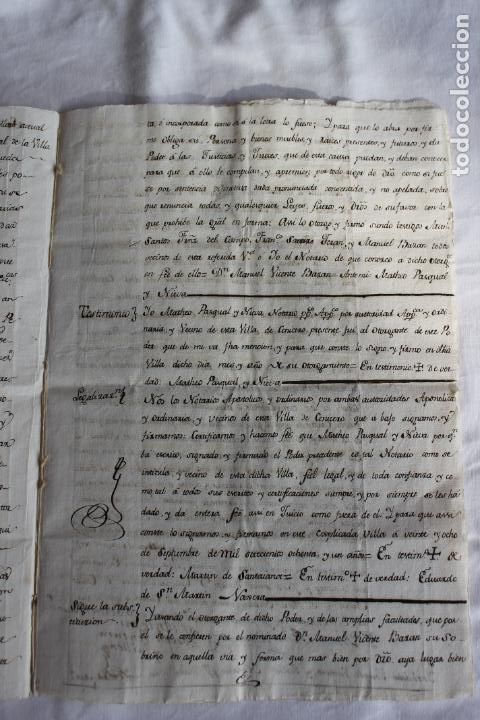 ta é incorporada como si á la letra lo fuese; Y para que lo abra por fir
me obliga su Persona, y bienes muebles, y raices presentes, y futuros y da
Poder á las Justicias, y Jueces, que de esta causa puedan, y deban conocer
para que á ello le compelan, y apremien por todo rigor de dro. como si fue
se por sentencia difinitiva dada pronunciada consentida, y no apelada, sobre
que renuncia todas, y qualesquier Leyes, fueros, y dros de su favor con la
que prohibe la gral en forma: Asi lo otorgó, y firmó siendo testigos
Santos del Campo, y Manuel Bazan todos
vecinos de esta referida Va. Yo el Notario de que conozco a dicho otorgte.
en fee de ello= Dn. Manuel Vicente Bazan= Antemi: Matheo Pasqual
y Nieva
Testimonio} Yo Matheo Pasqual y Nieva, Notario pco. Appco. por autoridad Appca. y Or
dinaria, y Vecino de esta Villa, de Cenicero presente fui al Otorgante de este Po
der que de mi va fha mencion, y para que conste lo signo, y firmo en dha
Villa dicho dia mes, y año de su otorgamiento= En testimonio + de ver
dad: Matheo Pasqual, y Nieva
Legalizazn.} Nos los Notarios Apostolicos, y ordinarios, por ambas autoridades Apostolica
y Ordinaria, y vecinos de esta Villa de Cenicero que a bajo signamos, y
firmamos: Certificamos y hacemos feé que Matheo Pasqual y Nieva por qn.
ba escrito, signado, y firmado el Poder precedente es tal Notario como se
intitula, y vecino de esta dicha Villa, fiel, legal, y de toda confianza y co
mo tal á todos sus escritos y certificaciones siempre, y por siempre se les ha
dado, y da entera feé, asi en Juicio como fuera de el. Y para que asi
conste lo signamos, y firmamos en esta explicada Villa á veinte y ocho
de Septiembre de Mil setecientos ochenta, y un años= En testimo. + de
verdad: Martin de Santacana= En testimo. + de verdad: Eduardo
de Sn. Martin y Navera
Sigue la subs
titucion} Y usando el otorgante, de dicho Poder, y de las amplias facultades, que por
el se le confieren por el nominado Dn. Manuel Vicente Bazan su So
brino en aquella via y forma que mas bien por Dro. aya lugar bien
todocoleccion